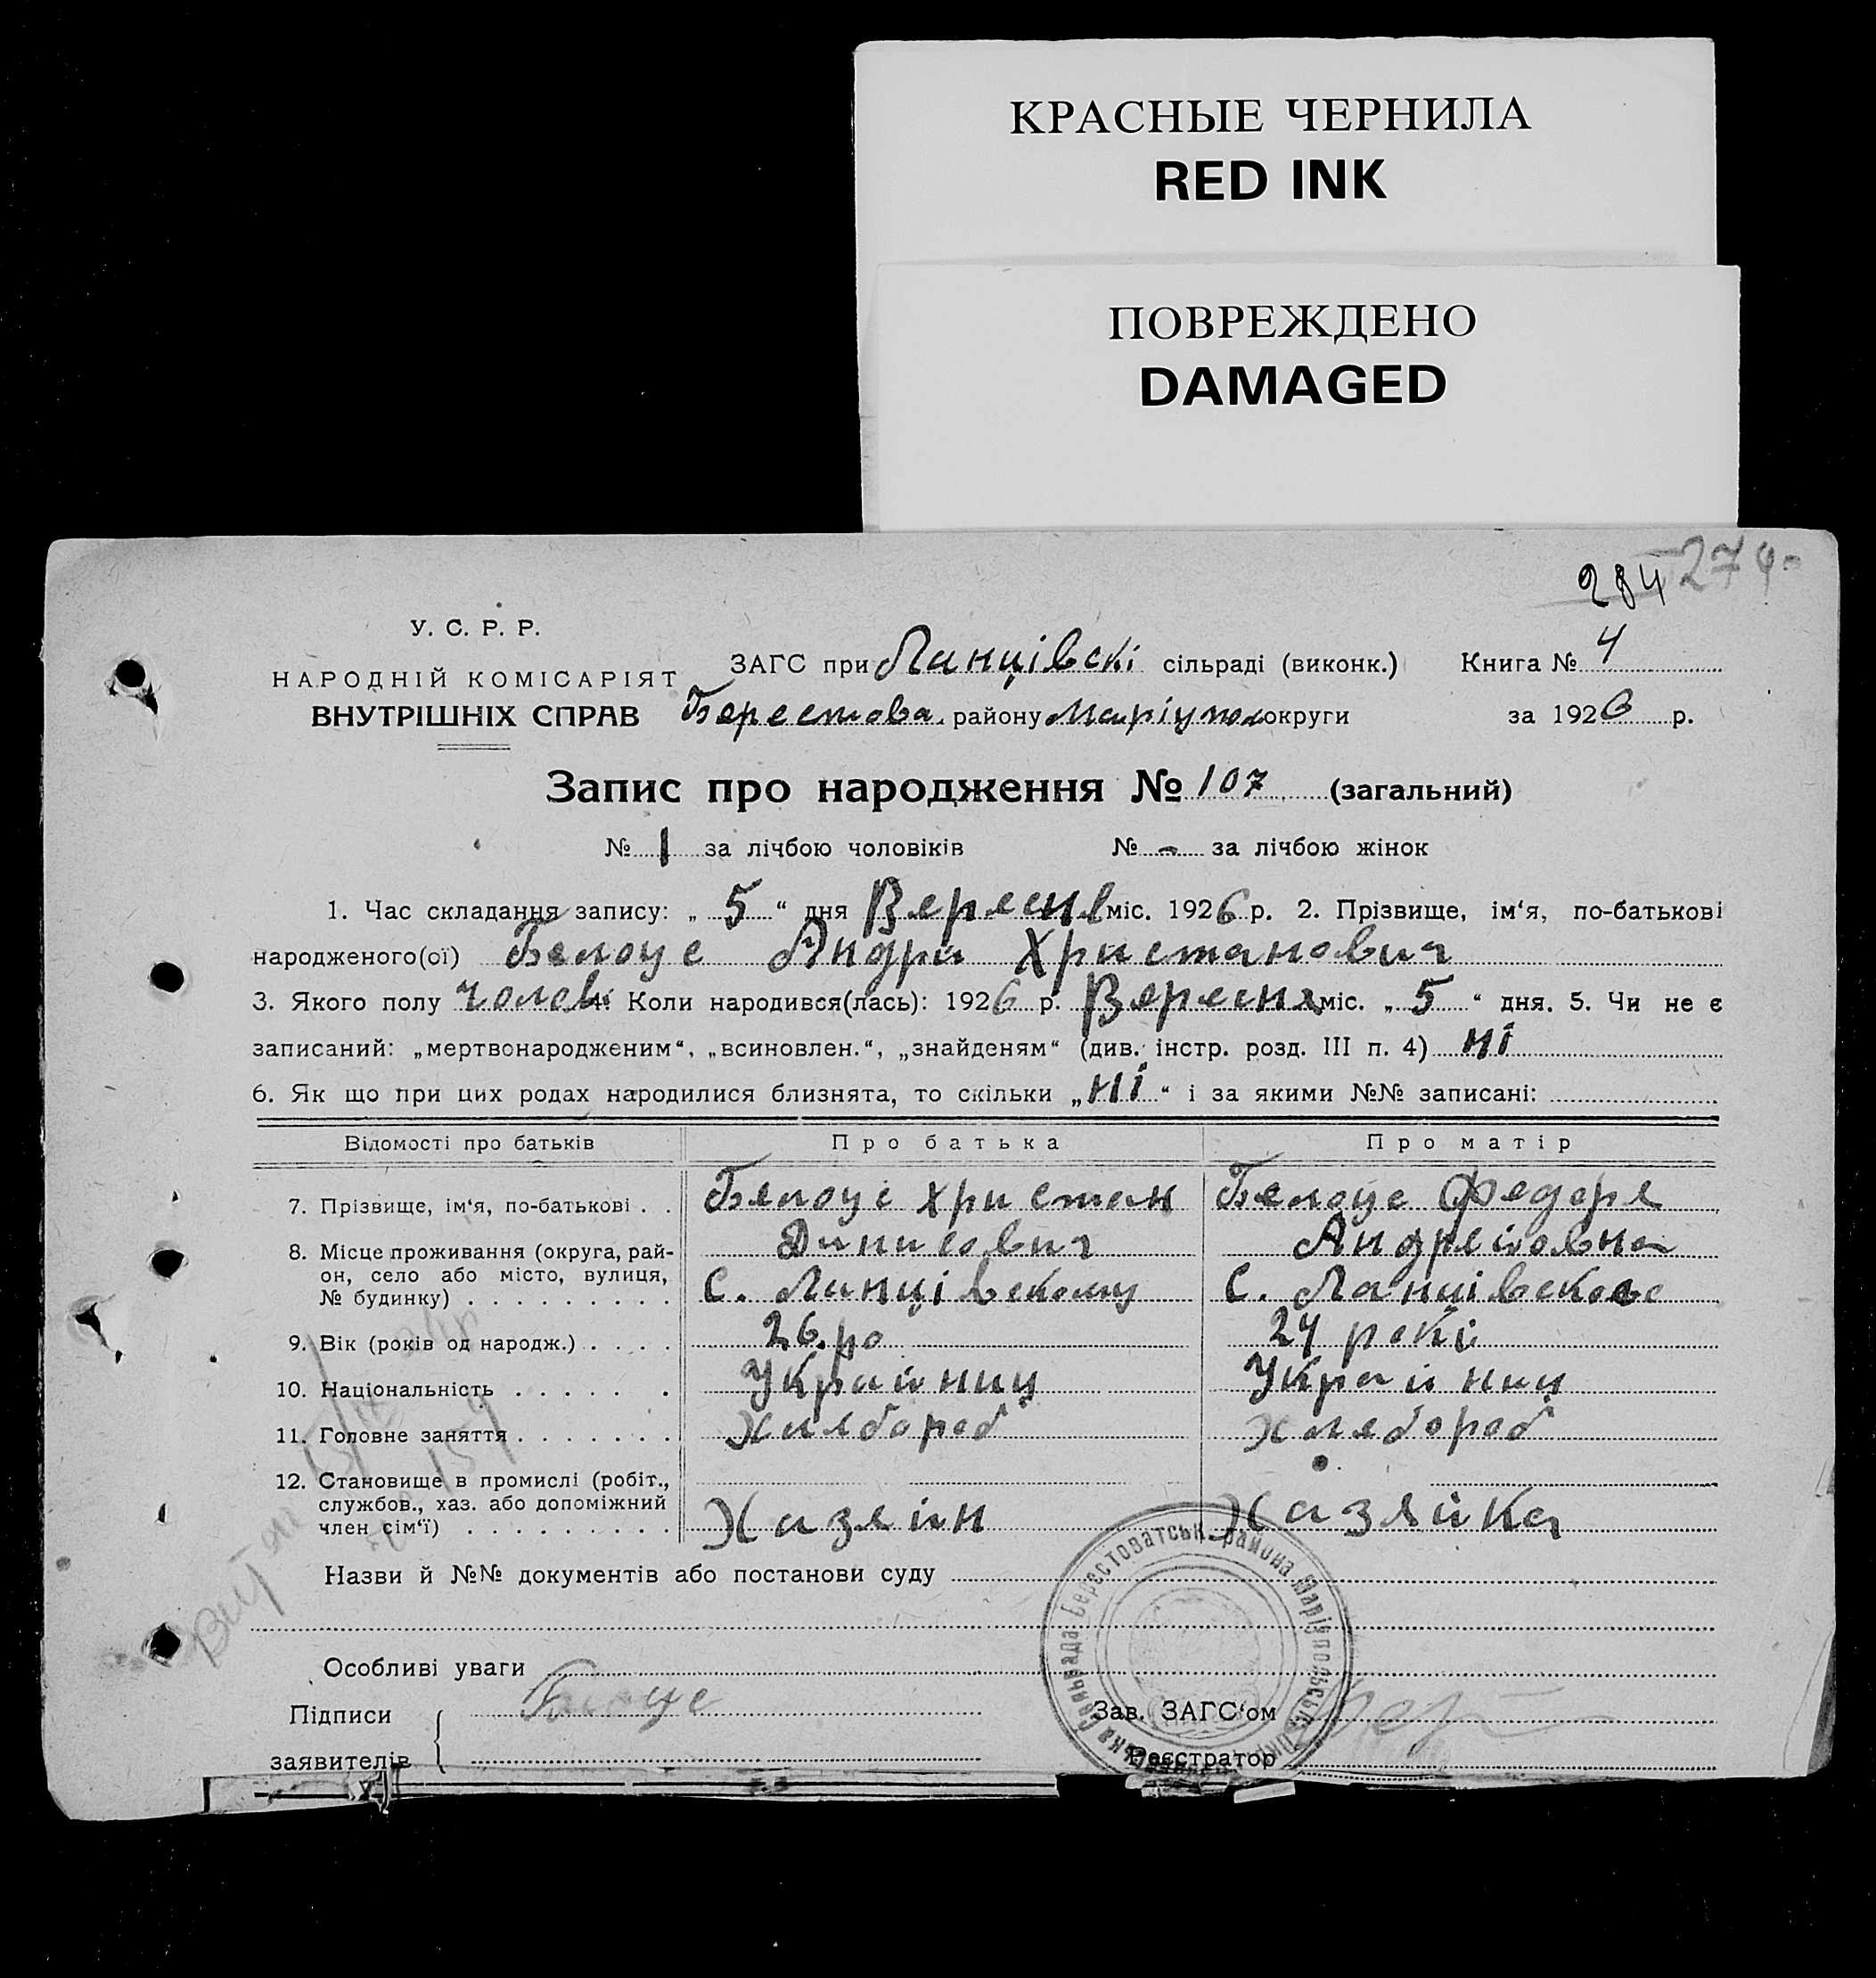 КРАСНЫЕ ЧЕРНИЛА
RED INK
ПОВРЕЖДЕНО
DAMAGED
284 274
У. С. Р. Р.
НАРОДНІЙ КОМІСАРІЯТ
ВНУТРІШНІХ СПРАВ
ЗАГС при Ланцівскі сільраді (виконк.) Книга № 4
Берестова. району Маріупол округи за 1926 р.
Запис про народження № 107 (загальний)
№ 1 за лічбою чоловіків № - за лічбою жінок
1. Час складання запису: „ 5 “ дня Вересня міс. 1926 р. 2. Прізвище, ім‘я, по-батькові
народженого(ої) Белоус Андри Христанович
3. Якого полу чолов 4. Коли народився(лась): 1926 р. Вересня міс. „ 5 “ дня. 5. Чи не є
записаний: „мертвонародженим“, „всиновлен.“, „знайденям“ (див. інстр. розд. III п. 4) ні
6. Як що при цих родах народилися близнята, то скільки „ ні “ і за якими №№ записані:
Відомості про батьків Про батька Про матір
7. Прізвище, ім‘я, по-батькові . . Белоус Христан Белоус Федоря
Динисович Андреіовна
8. Місце проживання (округа, рай-
он, село або місто, вулиця,
№ будинку) С. Ланцівскому С. Ланцівсково
9. Вік (років од народж.) 26 ро 24 рокі
10. Національність Украиниц Украиниц
11. Головне заняття Хлебороб Хлебороб
12. Становище в промислі (робіт.,
службов., хаз. або допоміжний
член сім‘ї) Хазяін Хазяйка
Назви й №№ документів або постанови суду
Особливі уваги
Підписи Белоус Зав. ЗАГС‘ом
заявителів Реєстратор
Сільрада Берестоватськ. района Маріупольськ. Окр.